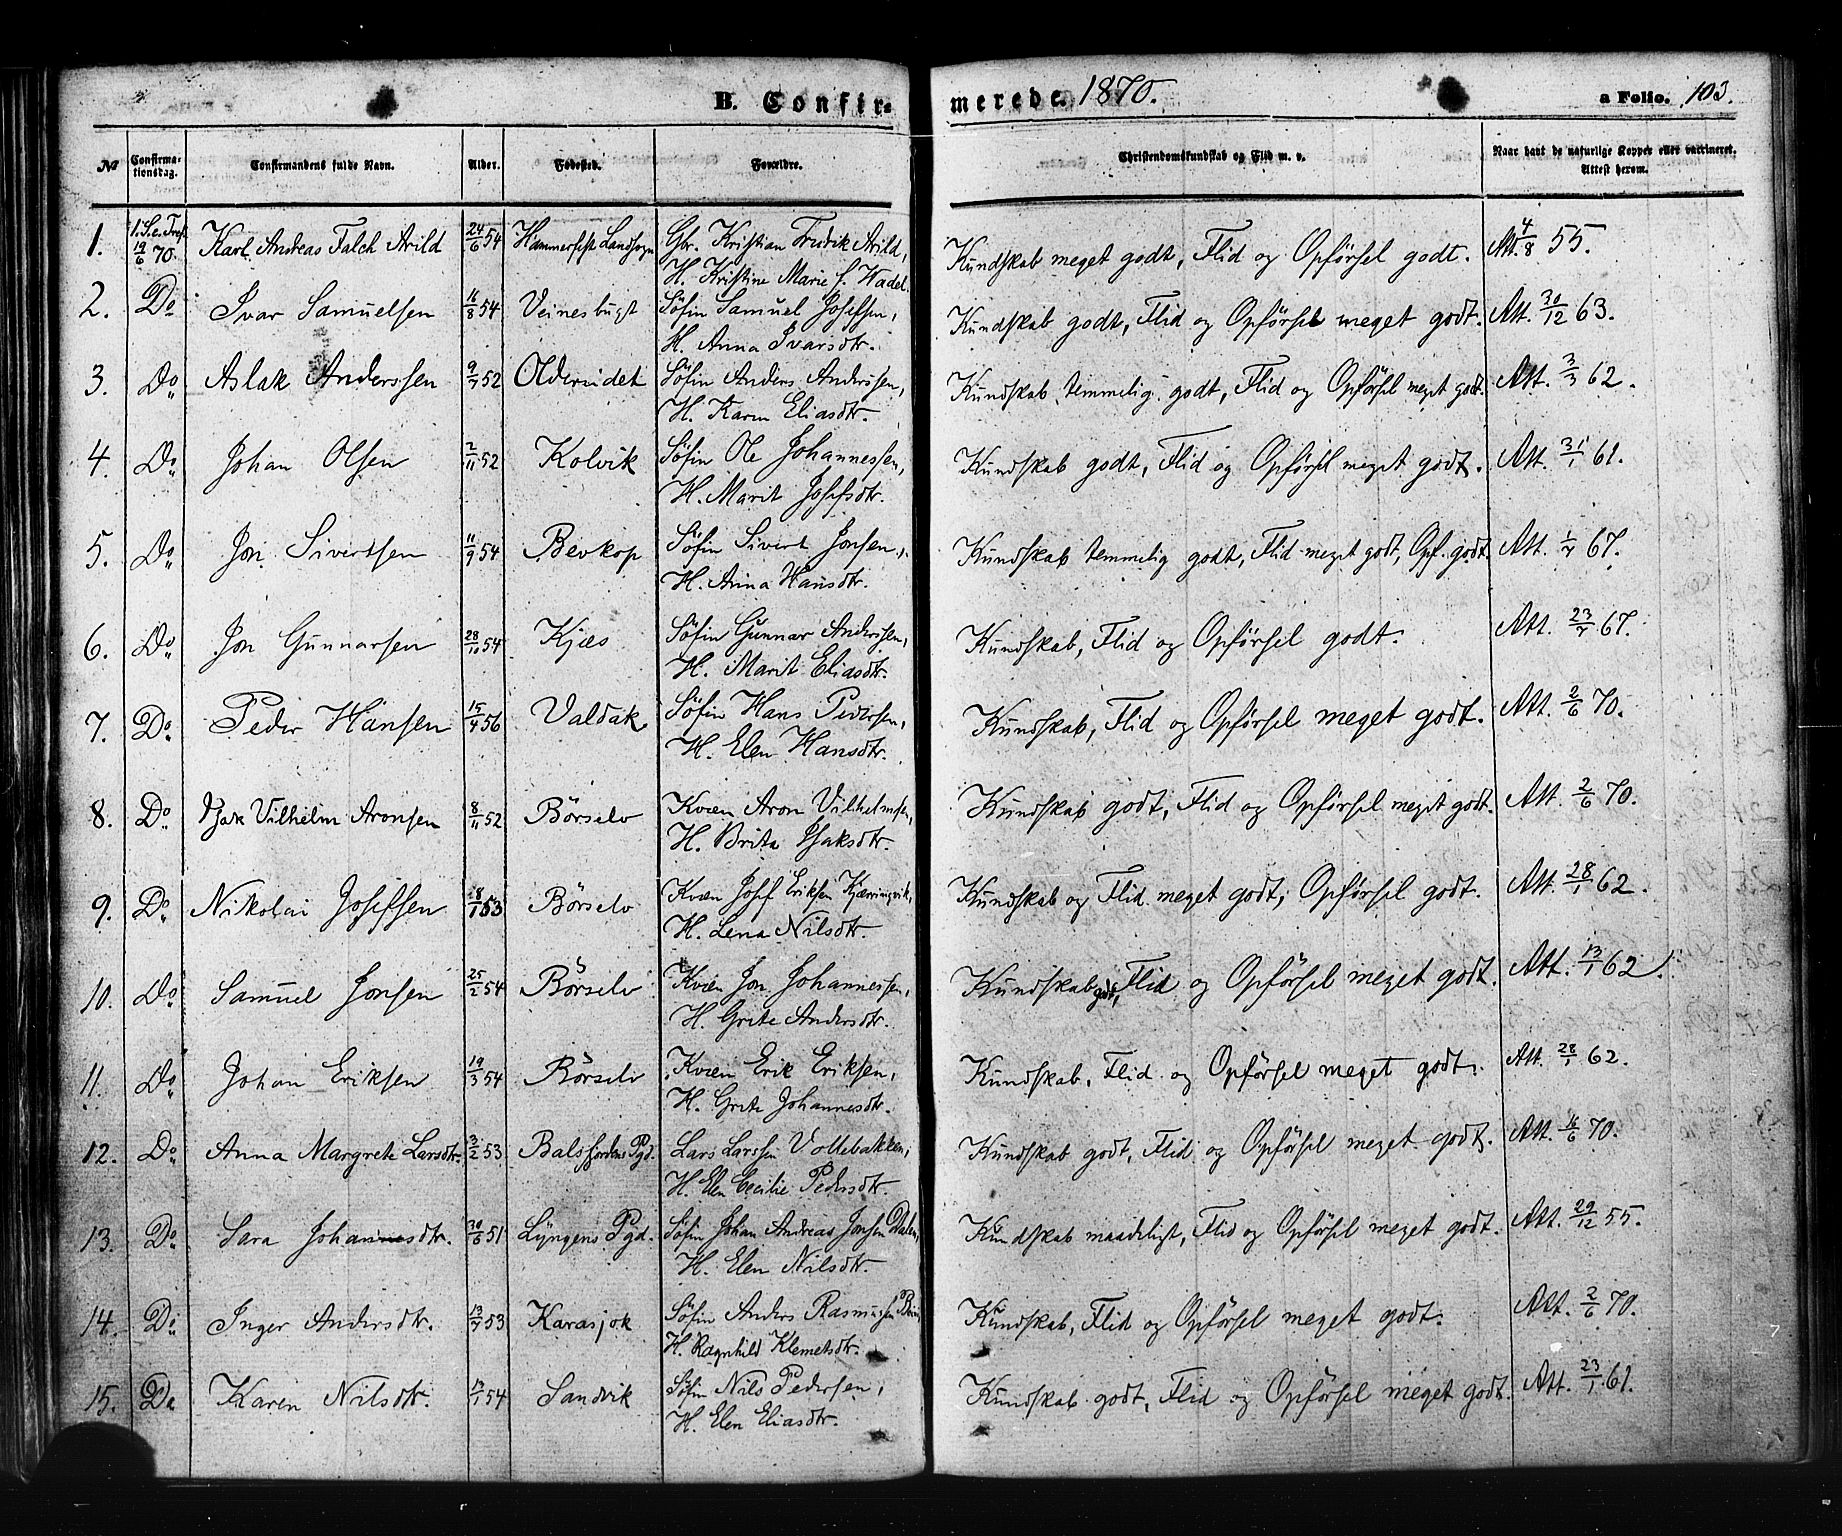 B. Confir-
merede. 1870.
a Folio. 103.
No
Confirma-
tionsdag.
Confirmandens fulde Navn.
Alder.
Fødested.
Forældre.
Christendomskundskab og Flid m. v.
Naar havt de naturlige Kopper eller vaccineret.
Attest herom.
1. 19/6 70 Karl Andreas Falch Arild 24/6 54 Hammerfest Landsogn Gbr. Kristian Fredrik Arild, Kundskab meget godt, Flid og Opførsel godt. Att. 4/8 55.
H. Kristine Marie f. Wadel.
2. Do Ivar Samuelsen 16/8 54 Veinesbugt Søfin Samuel Josefsen, Kundskab godt, Flid og Opførsel meget godt. Att. 30/12 63.
H. Anna Ivarsdtr.
3. Do Aslak Anderssen 9/7 52 Olderundet Søfin Anders Anderssen, Kundskab temmelig godt, Flid og Opførsel meget godt. Att. 3/3 62.
H. Karen Eliasdtr.
4. Do Johan Olsen 2/11 52 Kolvik Søfin Ole Johannessen, Kundskab godt, Flid og Opførsel meget godt. Att. 31/1 61.
H. Marit Josefsdtr.
5. Do Jon Sivertsen 11/9 54 Bevkop Søfin Sivert Jonsen, Kundskab temmelig godt, Flid meget godt, Opf. godt. Att. 1/7 67.
H. Anna Hansdtr.
6. Do Jon Gunnarsen 28/10 54 Kjæs Søfin Gunnar Anderssen, Kundskab, Flid og Opførsel godt. Att. 23/7 67.
H. Marit Eliasdtr.
7. Do Peder Hansen 15/4 56 Valdak Søfin Hans Pedersen, Kundskab, Flid og Opførsel meget godt. Att. 2/6 70.
H. Elen Hansdtr.
8. Do Isak Vilhelm Aronsen 8/11 52 Børselv Kvæn Aron Vilhelmsen, Kundskab godt, Flid og Opførsel meget godt. Att. 2/6 70.
H. Brita Isaksdtr.
9. Do Nikolai Josefsen 18/1 53 Børselv Kvæn Josef Eriksen Kjærringvik, Kundskab og Flid meget godt, Opførsel godt. Att. 28/1 62.
H. Lena Nilsdtr.
10. Do Samuel Jonsen 25/2 54 Børselv Kvæn Jon Johannessen, Kundskab godt, Flid og Opførsel meget godt. Att. 13/1 62.
H. Grete Andersdtr.
11. Do Johan Eriksen 19/3 54 Børselv Kvæn Erik Eriksen, Kundskab, Flid og Opførsel meget godt. Att. 28/1 62.
H. Grete Johannesdtr.
12. Do Anna Margrete Larsdtr. 3/2 53 Balsfjordens Pgd. Lars Larssen Voltebakken, Kundskab godt, Flid og Opførsel meget godt. Att. 16/6 70.
H. Elen Cecilie Pedersdtr.
13. Do Sara Johannesdtr. 30/6 51 Lyngens Pgd. Søfin Johan Andreas Jonsen Dalen, Kundskab maadeligt, Flid og Opførsel meget godt. Att. 29/12 55.
H. Elen Nilsdtr.
14. Do Inger Andersdtr. 13/7 53 Karasjok Søfin Anders Rasmussen Kundskab, Flid og Opførsel meget godt. Att. 2/6 70.
H. Ragnhild Klemetsdtr.
15. Do Karen Nilsdtr. 13/1 54 Sandvik Søfin Nils Pedersen, Kundskab godt, Flid og Opførsel meget godt. Att. 23/1 61.
H. Elen Eliasdtr.